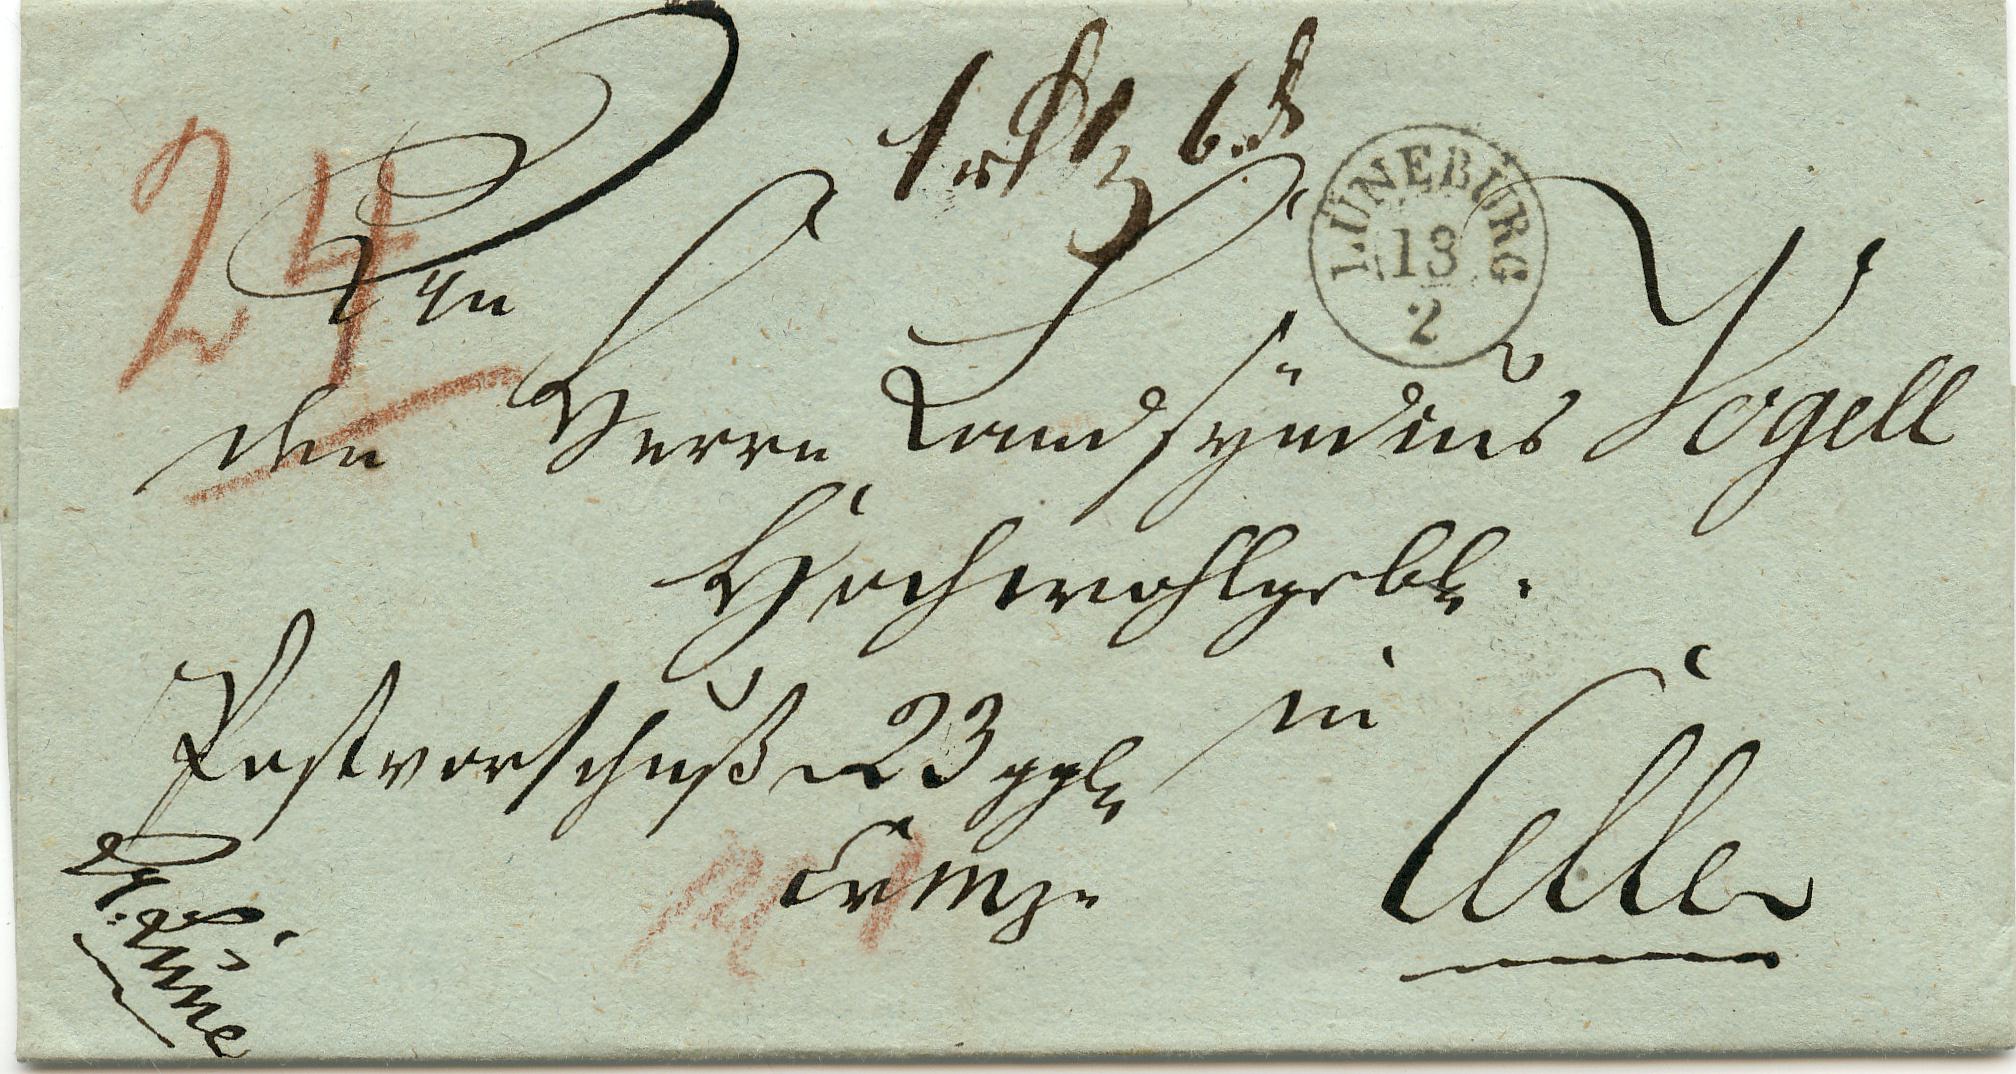 24
LÜNEBURG
13
2
An
den Herrn Landsyndicus Vogell
Hochwohlgeb.
in
Celle
Postvorschuß 23 ggr
Lüne